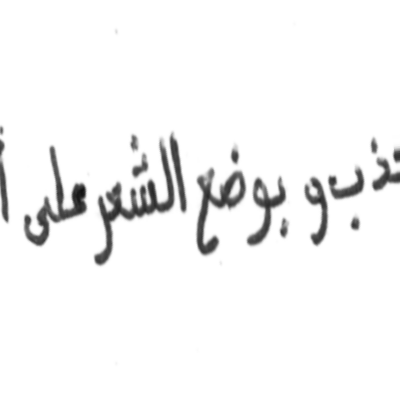 و بوضع الشعر على